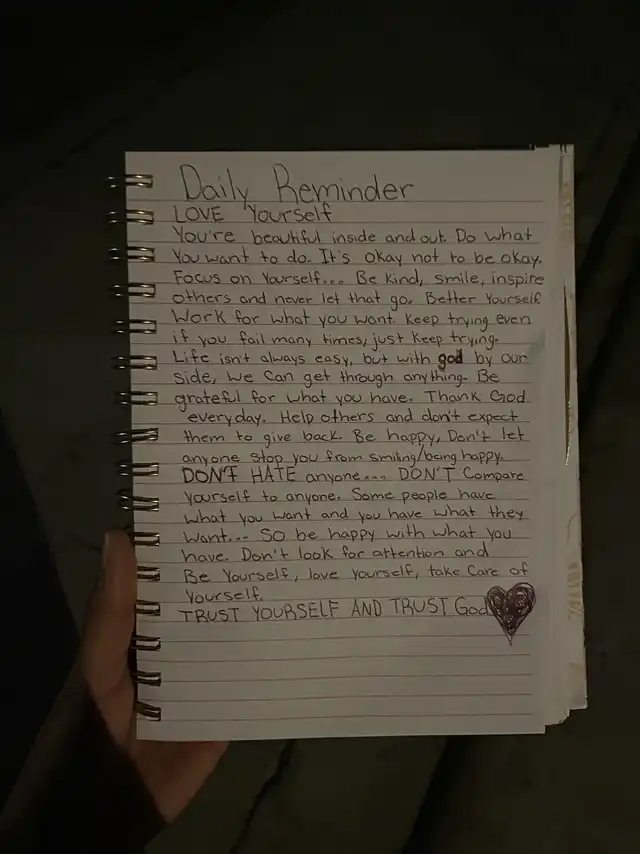 Daily Reminder
LOVE Yourself
You're beautiful inside and out. Do what
you want to do. It's okay not to be okay.
Focus on yourself... Be kind, smile, inspire
others and never let that go. Better yourself.
Work for what you want. Keep trying even
if you fail many times, just keep trying.
Life isn't always easy, but with god by our
side, we can get through anything. Be
grateful for what you have. Thank God
everyday. Help others and don't expect
them to give back. Be happy, Don't let
anyone stop you from smiling/being happy.
DON'T HATE anyone... DON'T Compare
yourself to anyone. Some people have
what you want and you have what they
want... SO be happy with what you
have. Don't look for attention and
Be Yourself, love yourself, take care of
yourself.
TRUST YOURSELF AND TRUST God